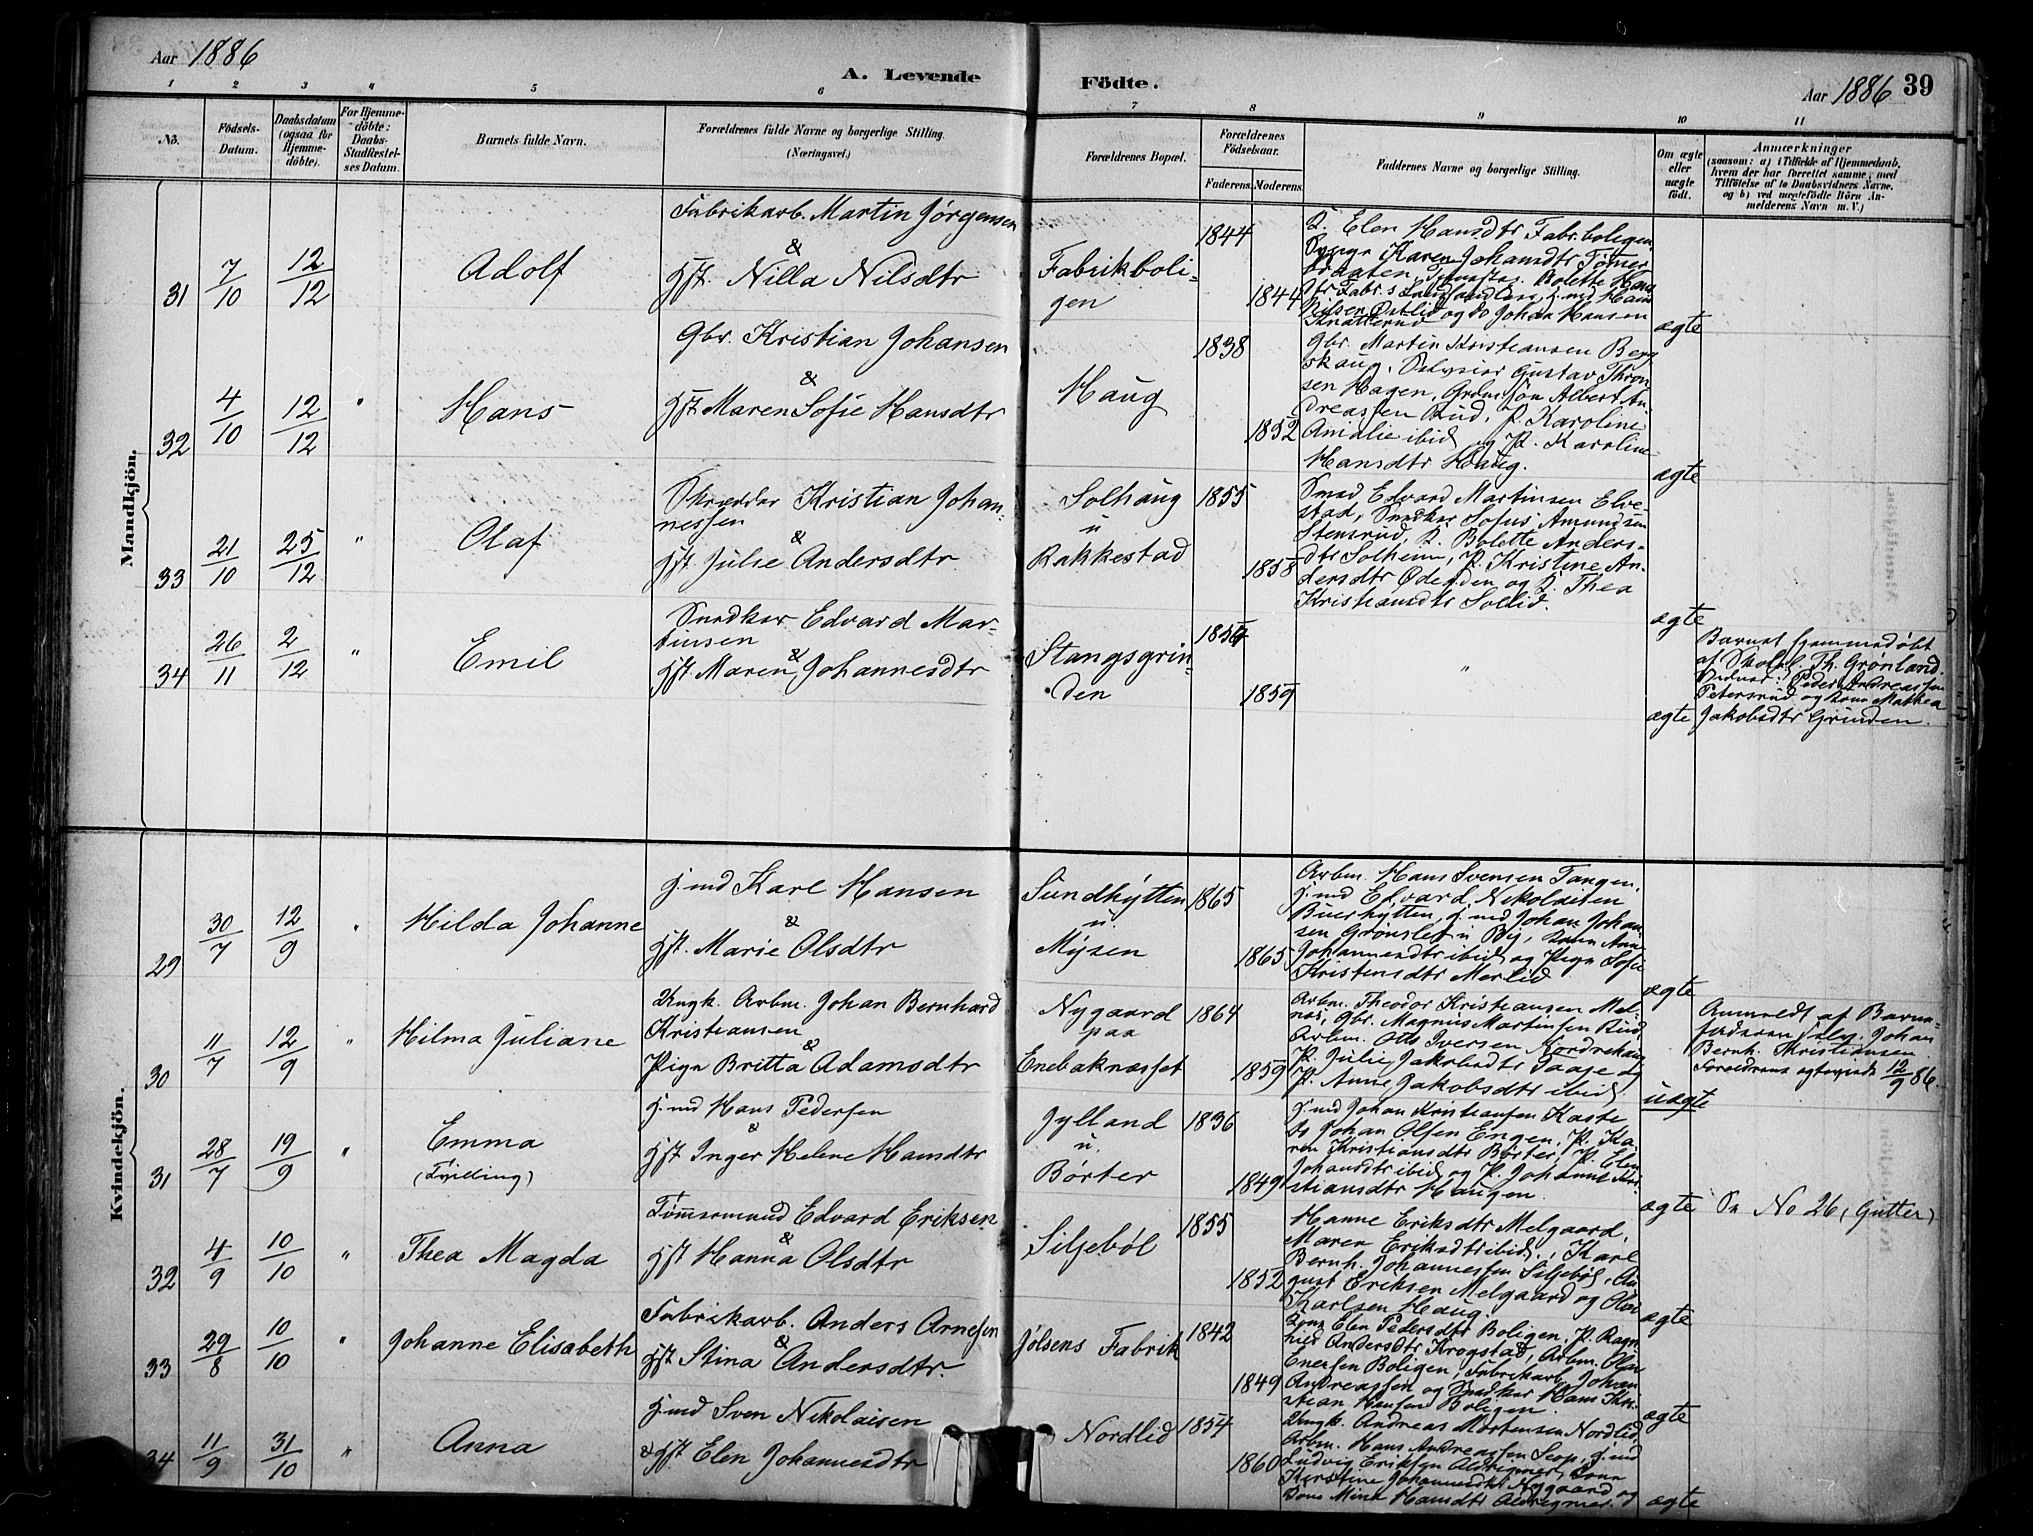 Aar 1886
A. Levende Födte.
Aar 1886 39
1 2 3 4 5 6 7 8 9 10 11
No.
Födsels-Datum.
Daabsdatum (ogsaa for Hjemme-döbte).
For Hjemme-döbte: Daabs-Stadfæstel-ses Datum.
Barnets fulde Navn.
Forældrenes fulde Navne og borgerlige Stilling.
(Næringsvei.)
Forældrenes Bopæl.
Forældrenes Födselsaar.
Faderens. Moderens.
Faddernes Navne og borgerlige Stilling.
Om ægte eller uægte födt.
Anmærkninger
(saasom: a) i Tilfælde af Hjemmedaab,
hvem der har forrettet samme, med
Tilföielse af to Daabsvidners Navne,
og b) ved uægtefödte Börn An-
melderens Navn m. V.)
Mandkjön.
31 7/10 12/12 Adolf
Fabrikarb. Martin Jørgensen
&
Gft. Nilla Nilsdtr
Fabrikboli-
gen
1844
1844
P. Elen Hansdtr Fabr.boligen
Karen Johansdtr Tømer-
Bolette Han
og do Johan Hansen
ægte
32 4/10 12/12 " Hans
Gbr. Kristian Johansen
&
Gft. Maren Sofie Hansdtr
Haug
1838
1852
Gbr Martin Kristiansen Berg
skaug, Gustav Thron
sen Hagen, Grdm. søn Albert An-
dreassen Rud, P. Karoline
Amalie ibid og P. Karoline
Hansdtr Haug.
ægte
33 21/10 25/12 " Olaf
Skrædder Kristian Johan-
nessen
&
Gft. Julie Andersdtr
Solhaug
u
Rakkestad
1855
1858
Smed Edvard Martinsen Elve-
stad, Snedker Sofus Amundsen
Stensrud, P. Bolette Anders-
dtr Solheim, P. Kristine An-
dersdtr Ødegden og P. Thea
Kristiansdtr Sollid.
ægte
34 26/11 2/12 " Emil
Snedker Edvard Mar-
tinsen
&
Gft. Maren Johannesdtr
Stangsgrin-
den
1859
"
ægte
Barnet hjemmedøbt
af Skolel. Th. Grønland.
Vidner: Peder Andreassen
Petersrud og Kone Mathea
Jakobsdtr Grinden.
Kvindekjön.
29 30/7 12/9 " Hilda Johanne
J.md Karl Hansen
&
Gft. Marie Olsdtr
Sundhytten
u.
Mysen
1865
1865
Arbm. Hans Svensen Tangen,
J.md Edvard Nikolaisen
Buerhytten, J.md Johan Johan-
sen Grønslet u By, Kone Anne
Johannesdtr ibid og Pige Sofie
Kristensdtr Merlid
ægte
30 11/7 12/9 " Hilma Juliane
Ungk. Arbm. Johan Bernhard
Kristiansen
&
Pige Britta Adamsdtr
Nygaard
paa
Enebaknesset
1864
1859
Arbm. Theodor Kristiansen Mel-
nes, Gbr. Magnus Martinsen Rud,
Arbm. Otto Iversen Nordrehaug
P. Julie Jakobsdtr Daase og
P. Anne Jakobsdtr ibid
uægte
Anmeldt af Barne-
faderen selv, Johan
Bernh. Kristiansen.
Forældrene ægteviede 12/9 86.
31 28/7 19/9 " Emma
(Tvilling)
J.md Hans Pedersen
&
Gft Inger Helene Hansdtr
Jylland
u.
Børter
1836
1849
J.md Johan Kristiansen Kaste
Do Johan Olsen Engen, P. Ka-
ren Kristiansdtr Børter, P. Elen
Johansdtr ibid og P. Johanne Kri-
stiansdtr Haugen.
ægte
Se No 26 (Gutter)
32 4/9 10/10 " Thea Magda
Tømmermand Edvard Eriksen
&
Gft Hanna Olsdtr
Siljebøl
1855
1852
Hanne Eriksdtr Melgaard,
Maren Eriksdtr ibid., Karl
Bernh. Johannessen Siljebøl, Au-
gust Eriksen Melgaard og
Karlsen Haug.
ægte
33 29/8 10/10 " Johanne Elisabeth
Fabrikarb. Anders Arnesen
&
Gft Stina Andersdtr.
Jølsens Fabrik
1842
1849
Kone Elen Pedersdtr Boligen, P. Ragn-
hild Andersdtr Krogstad, Arbm. Olan
Enersen Boligen, Fabrikarb. Johan
Andreassen og Snedker Hans Kri-
stian Hansen Boligen
ægte
34 11/9 31/10 " Anna
J.md Sven Nikolaisen
& Gft Elen Johannesdtr
Nordlid
1854
1860
Ungk. Andreas Mortensen Nordlid
Arbm. Hans Andreassen Seop, J.md
Ludvig Eriksen Kone
Kirstine Johannesdtr Nygaard og
Hansdtr
ægte